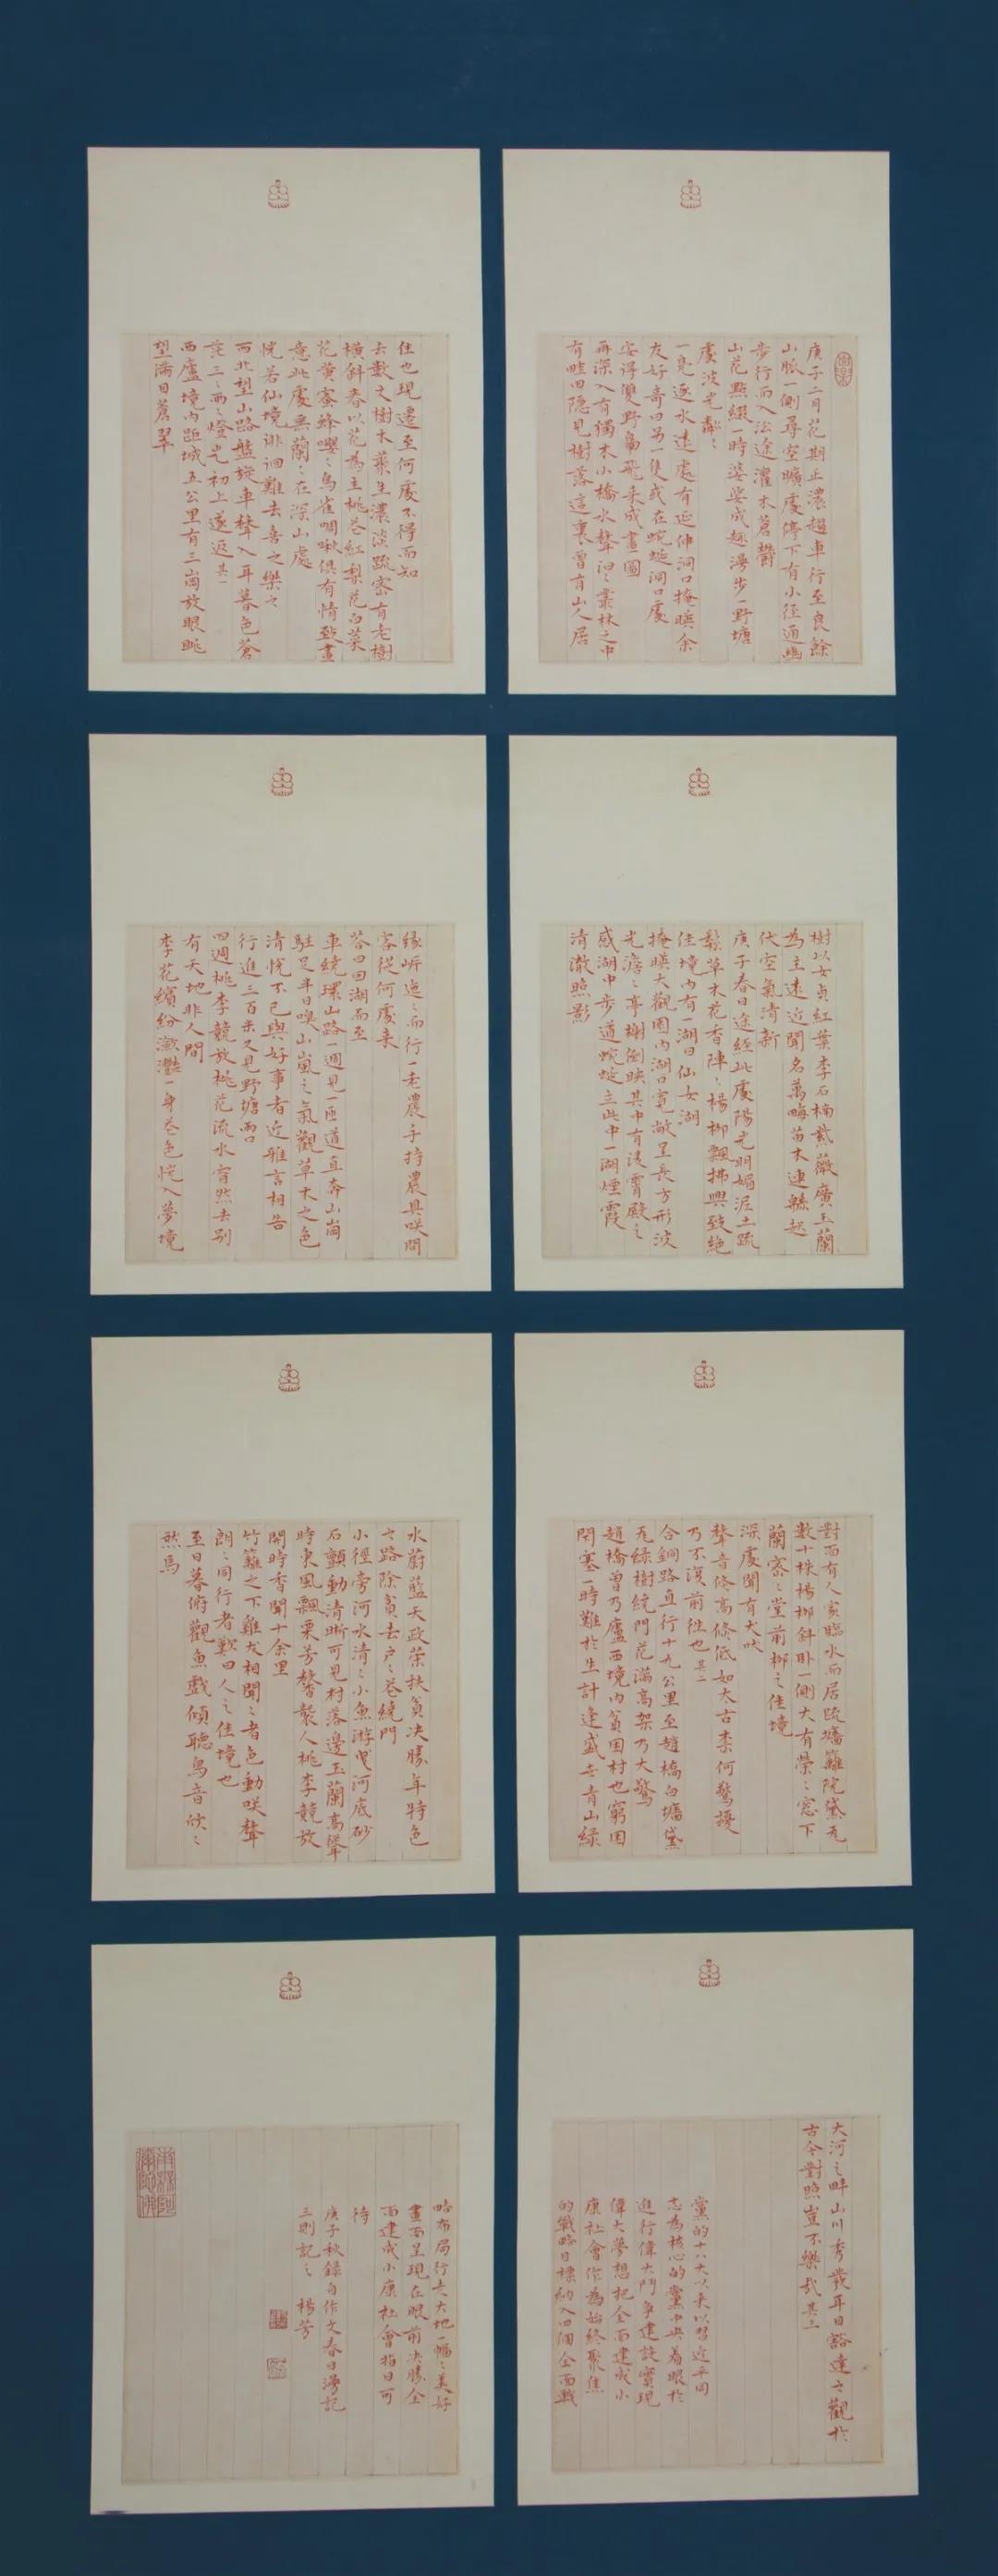 庚子二月花期正濃趨車行至良餘
山脈一側尋空曠處停下有小徑通幽
步行而入沿途灌木蒼鬱
山花點綴一時婆娑成趣漫步一野塘
處波光粼〻
一凫逐水遠處有延伸洞口掩暎余
友好奇曰另一隻或在蜿蜒洞口處
安得雙野凫飛來成畫圖
再深入有獨木小橋水聲汩〻叢林之中
有畦田隱見樹落這裏曾有山人居
住也現遷至何處不得而知
去數丈樹木叢生濃淡疏密有老樹
橫斜春以花為主桃卷紅梨花白菜
花黃蜜蜂嚶〻鳥雀啁啾俱有情致畫
意此處無蘭〻在深山處
恍若仙境徘徊難去喜之樂之
西北望山路盤旋車聲入耳暮色蒼
茫三〻兩〻燈光初上遂返其一
西廬境內距城五公里有三崗放眼眺
望滿目蒼翠
樹以女貞紅葉李石楠紫薇廣玉蘭
為主遠近聞名萬畮苗木連緜起
伏空氣清新
庚子春日途經此處陽光明媚泥土疏
鬆草木花香陣〻楊柳飄拂興致絶
佳境內有一湖曰仙女湖
掩暎大觀園內湖口寬敞呈長方形波
光澹〻亭榭倒映其中有淩霄殿之
感湖中步道蜿蜒立此中一湖煙霞
清澈照影
緣岍迤〻而行一老農手持農具咲問
客從何處来
答曰回湖而至
車繞環山路一週見一匝道直奔山崗
駐足半日嗅山嵐之氣觀草木之色
清悅不已與好事者近雅言相告
行進三百米又見野塘兩口
四週桃李競放桃花流水窅然去別
有天地非人間
李花繽紛瀲灩一身卷色恍入夢境
對面有人家臨水而居疏墻籬院黛瓦
數十株楊柳斜卧一側大有榮〻窓下
蘭寮〻堂前柳之佳境
深處聞有犬吠
聲音條高條低如太古柰何驚擾
乃不湏前徃也其二
合銅路直行十九公里至趙橋白墻黛
瓦綠樹繞門花滿高架乃大驚
趙橋曾乃廬西境內貧困村也窮困
閉塞一時難於生計逢盛世青山綠
水蔚藍天政策扶貧决勝年特色
之路除貧去戶〻巷繞門
小徑旁河水清〻小魚游曳河底砂
石顫動清晰可見村落邊玉蘭高聳
時東風飄栗芳馨襲人桃李競放
開時香聞十余里
竹籬之下雞犬相聞〻者色動咲聲
朗〻同行者歎曰人之佳境也
至日暮俯觀魚戲傾聽鳥音欣〻
然焉
大河之畔山川秀發年日豁達之觀於
古今對照豈不樂哉其三
黨的十八大以来以習近平同
志為核心的黨中央着眼於
進行偉大鬥爭建設實現
偉大夢想把全面建成小
康社會作為始終聚焦
的戰略目標納入四個全面戰
略布局行走大地一幅〻美好
畫面呈現在眼前决勝全
面建成小康社會指日可
待
庚子秋録自作文春日漫記
三則記之 楊芳
南無阿彌陀佛